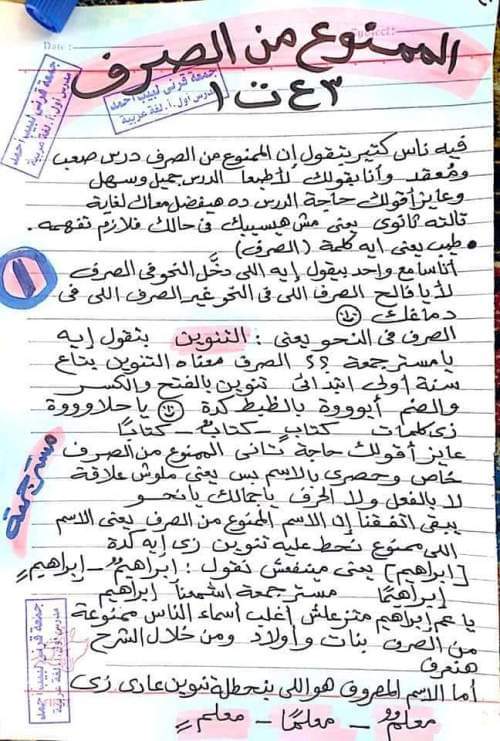 Date :
Subject:
الممنوع من الصرف
٣ ع ت ١
جمعة قرني لبيب احمد
مدرس أول أ. لغة عربية
جمعة قرني لبيب احمد
مدرس أول أ. لغة عربية
فيه ناس كتير بتقول إن الممنوع من الصرف درس صعب
ومعقد وأنا بقولك لأ طبعا الدرس جميل وسهل
وعايز أقولك حاجة الدرس ده هيفضل معاك لغاية
تالته ثانوى يعنى مش هيسيبك فى حالك فلازم تفهمه.
• طيب يعنى ايه كلمة (الصرف)
أنا سامع واحد بيقول إيه اللى دخَّل النحو فى الصرف
لأ يا فالح الصرف اللى فى النحو غير الصرف اللى فى
دماغك
١
الصرف فى النحو يعنى : التنوين بتقول إيه
يا مستر جمعة ؟؟ الصرف معناه التنوين بتاع
سنة أولى ابتدائى تنوين بالفتح والكسر
والضم أيوووة بالظبط كدة يا حلاوووة
زى كلمات كتابٍ - كتابٌ - كتاباً
عايز أقولك حاجة تانى الممنوع من الصرف
خاص وحصرى بالاسم بس يعنى ملوش علاقة
لا بالفعل ولا الحرف يا جمالك يا نحو
مستر جمعة
يبقى اتفقنا إن الاسم الممنوع من الصرف يعنى الاسم
اللى ممنوع نحط عليه تنوين زى إيه كدة
[إبراهيم] يعنى مينفعش تقول : إبراهيمٌ - إبراهيمٍ
إبراهيمًا مستر جمعة اشمعنا إبراهيم
يا عم إبراهيم متزعلش أغلب أسماء الناس ممنوعة
من الصرف بنات وأولاد ومن خلال الشرح
هنعرف
أما الاسم المصروف هو اللى ينحطله تنوين عادى زى
معلمٌ - معلمًا - معلمٍ
جمعة قرني لبيب احمد
مدرس أول أ. لغة عربية